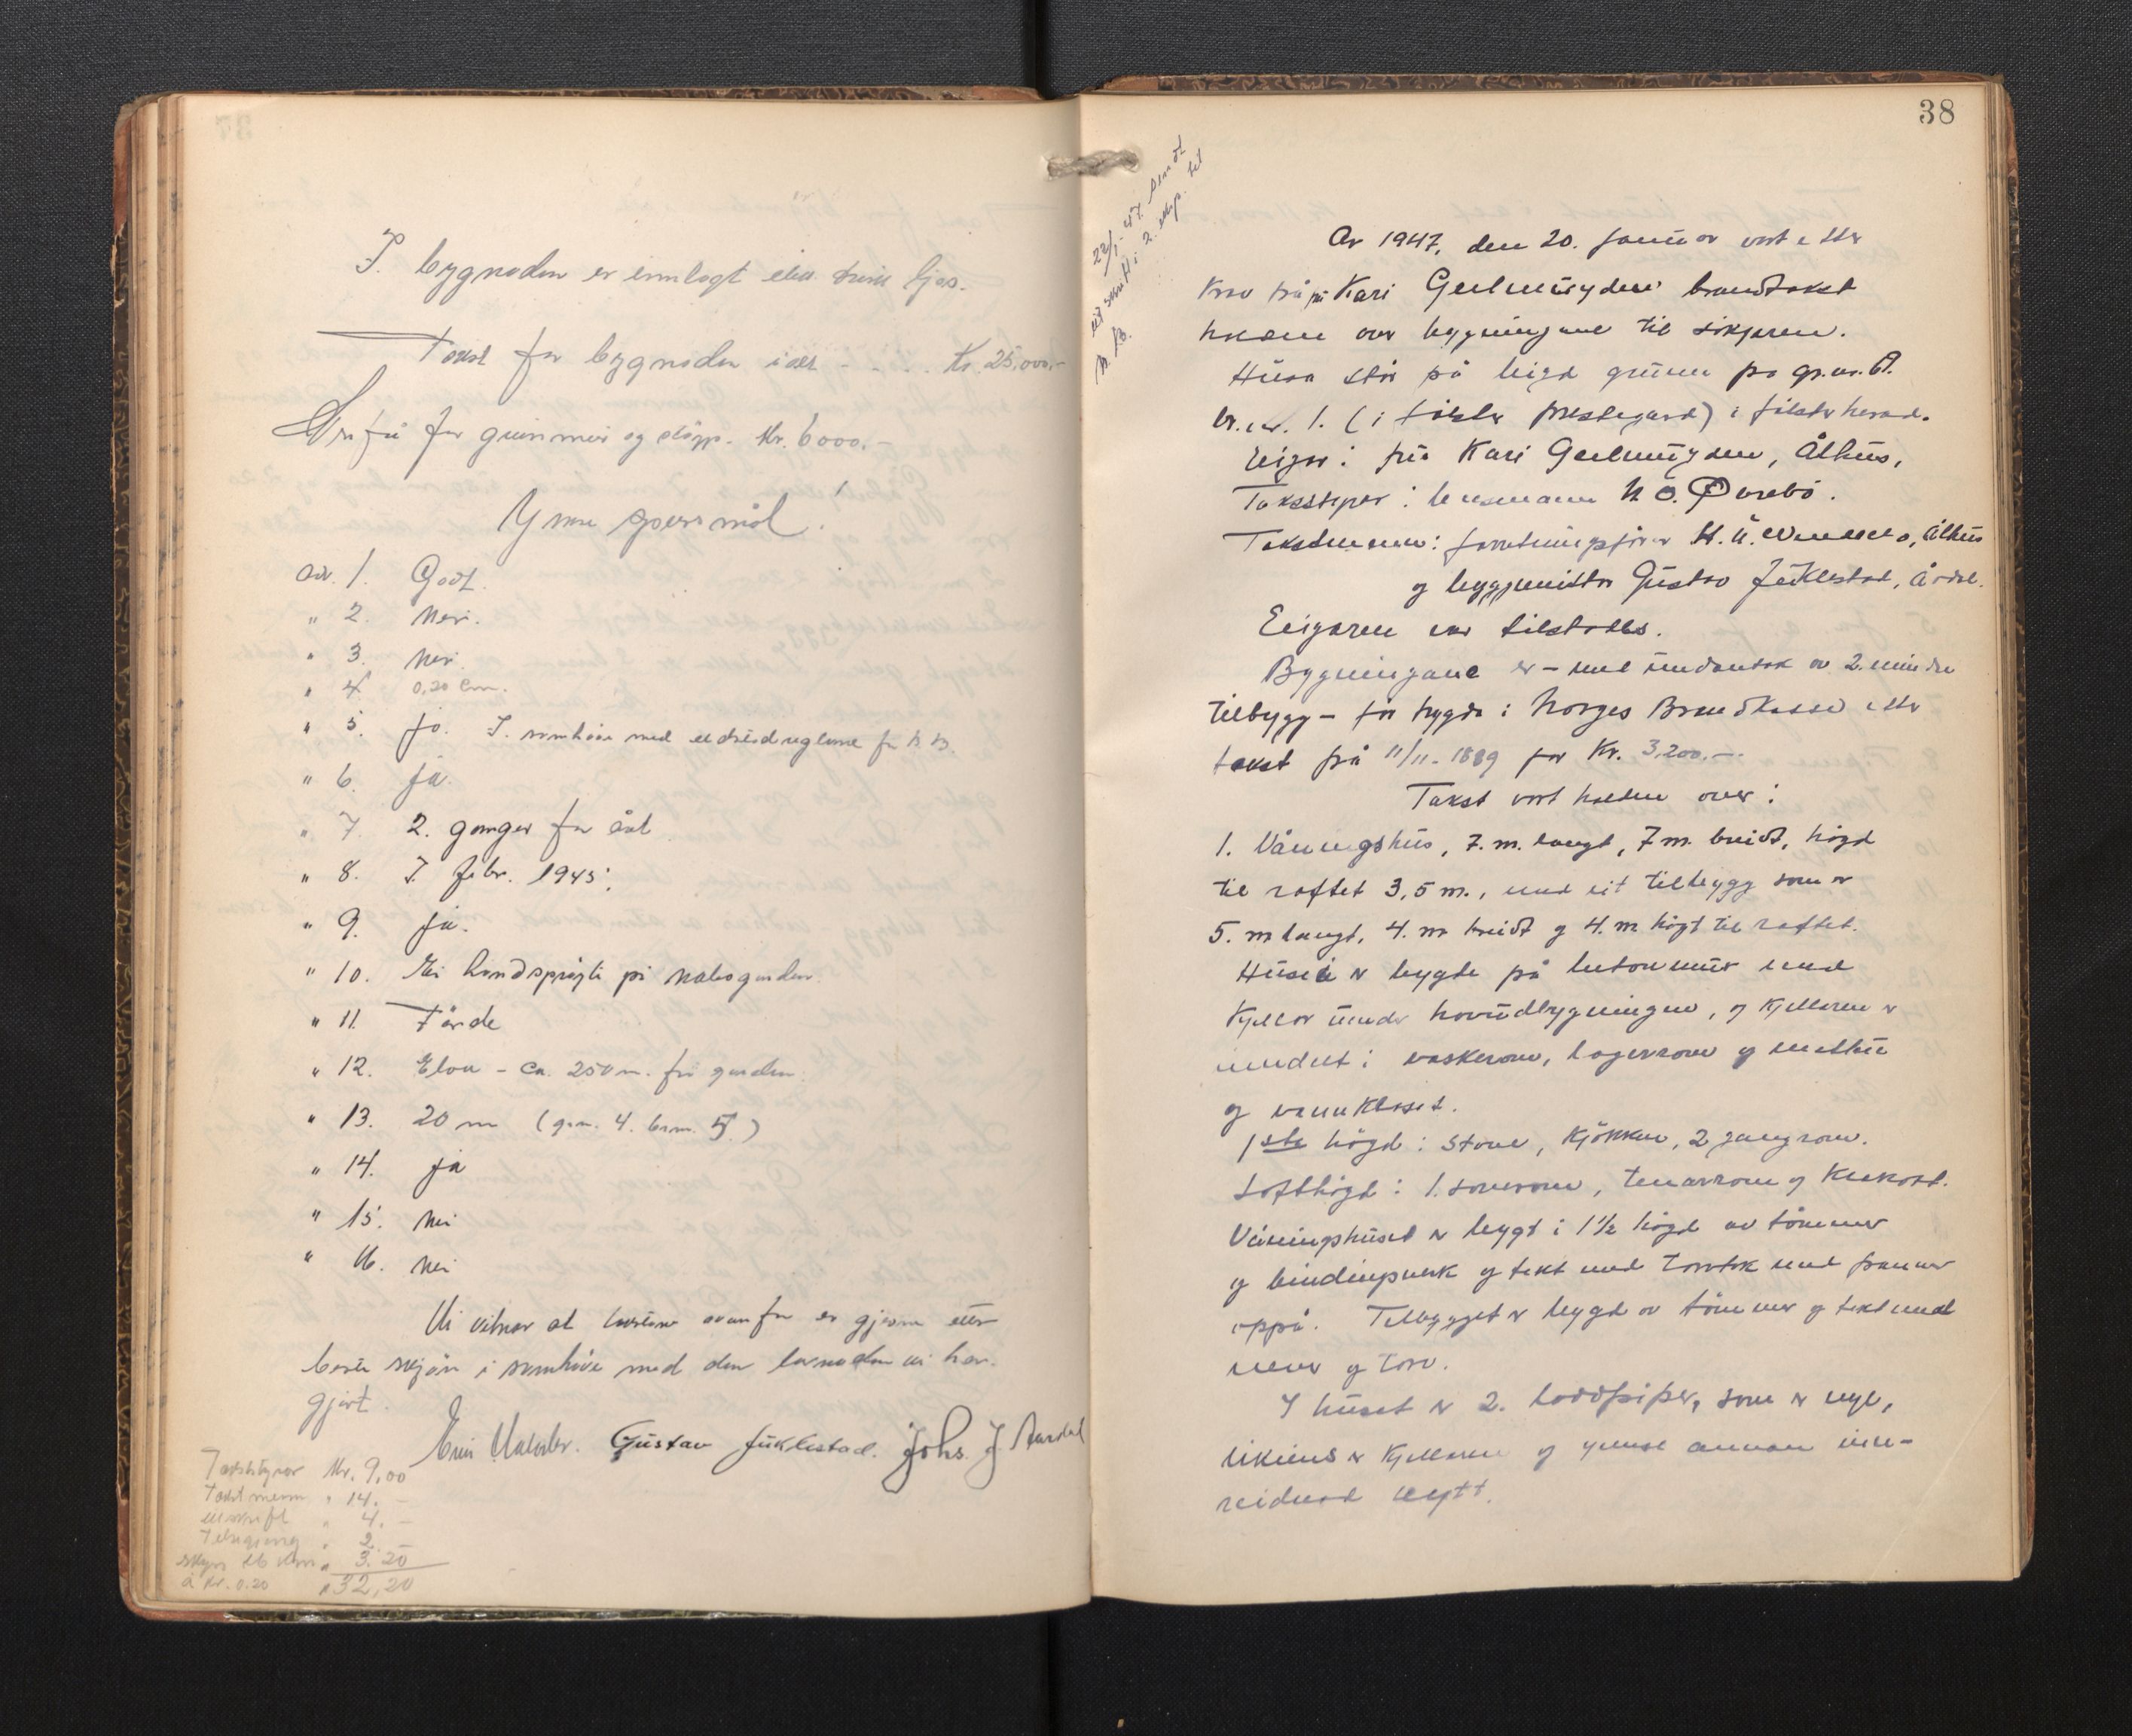 I. bygnaden er innlagt elek. ljos.
Takst for bygnaden i alt - . . . Kr. 25,000,-
for grunnmur og Kr. 6000.-
Ymse spursmål!
ad. 1. Godt.
" 2. Nei.
" 3. Nei.
" 4. 0,20 cm.
" 5. ja. I. samhøve med for N. B.
" 6. ja.
" 7. 2. ganger for året
" 8. I febr. 1945.
" 9. ja.
" 10. Ei handsprøyte på nabogarden.
" 11. Førde
" 12. Elva - ca. 250 m. frå garden.
" 13. 20 m (grn. 4. brn. 5.)
" 14. ja
" 15. Nei
" 16. Nei
Vi vitnar at taksten ovanfor er gjeven etter
beste skjøn i samhøve med den lovnaden vi har
gjort.
Gustav Juklestad. Johs. J. Aardal
Takststyrar Kr. 9,00
Takstmenn " 14. -
utskrift " 4. -
" 2. -
skyss 16 km " 3.20
à kr. 0.20 " 32,20
38
22/1-47. sendt
utskrift i 2. eksp. til
N. B.
År 1947, den 20. januar vart etter
krav frå fru Kari Geelmuyden brandtakst
halden over bygningane til sikjaren.
Husa står på leigd grunn på gr.nr.
br.nr. 1. (i Jølster prestegard) i Jølster herad.
Eigar: fru Kari Geelmuyden, Ålhus,
Takststyrar: lensmann N. O. Øvrebø.
Takstmenn: forretningsførar Ålhus
og byggmeister Gustav Juklestad, Årdal.
Eigaren var tilstades.
Bygningane er - med undantak av 2. mindre
tilbygg - før trygda i Norges Brandkasse etter
takst frå 11/11-1889 for Kr. 3,200.-
Takst vart halden over:
1. Våningshus, 7. m. langt, 7 m. breidt, høgd
til raftet 3,5 m., med eit tilbygg som er
5. m langt, 4. m breidt og 4. m. høgt til raftet.
Huset er bygde på betonmur med
kjellar under hovudbygningen, og kjellaren er
inndelt i vaskerom, lagerrom og matbu
og vannkloset.
1ste høgd: stove, kjøkken, 2 gangrom.
Lofthøgd: 1. soverom, og
Våningshuset er bygt i 1½ høgd av tømmer
og bindingsverk og tekt med torvtak med pannar
oppå. Tilbygget er bygd av tømmer og tekt med
never og torv.
I huset er 2. brandpiper, som er nye,
likeins er kjellaren og ymse annan inn-
reidnad nytt.